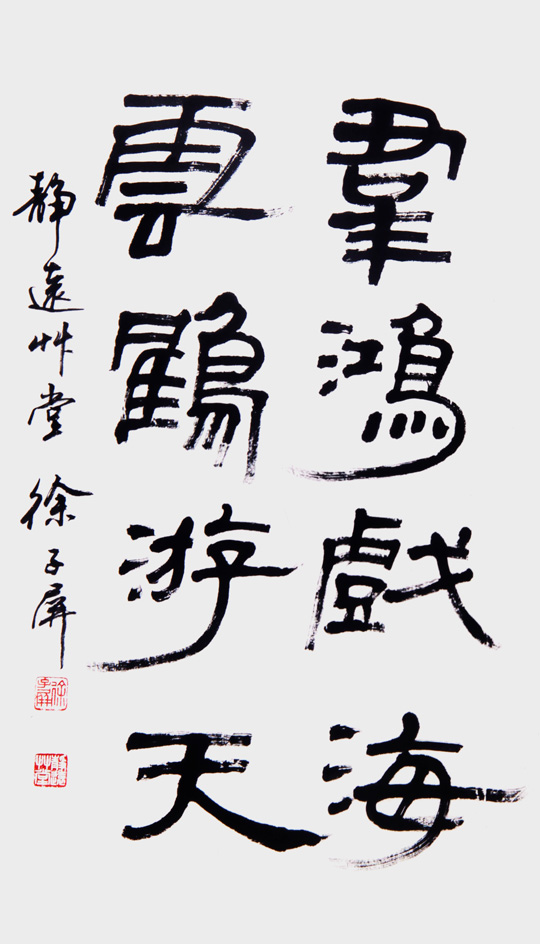 羣鴻戲海
雲鶴游天
静遠艸堂 徐子屏